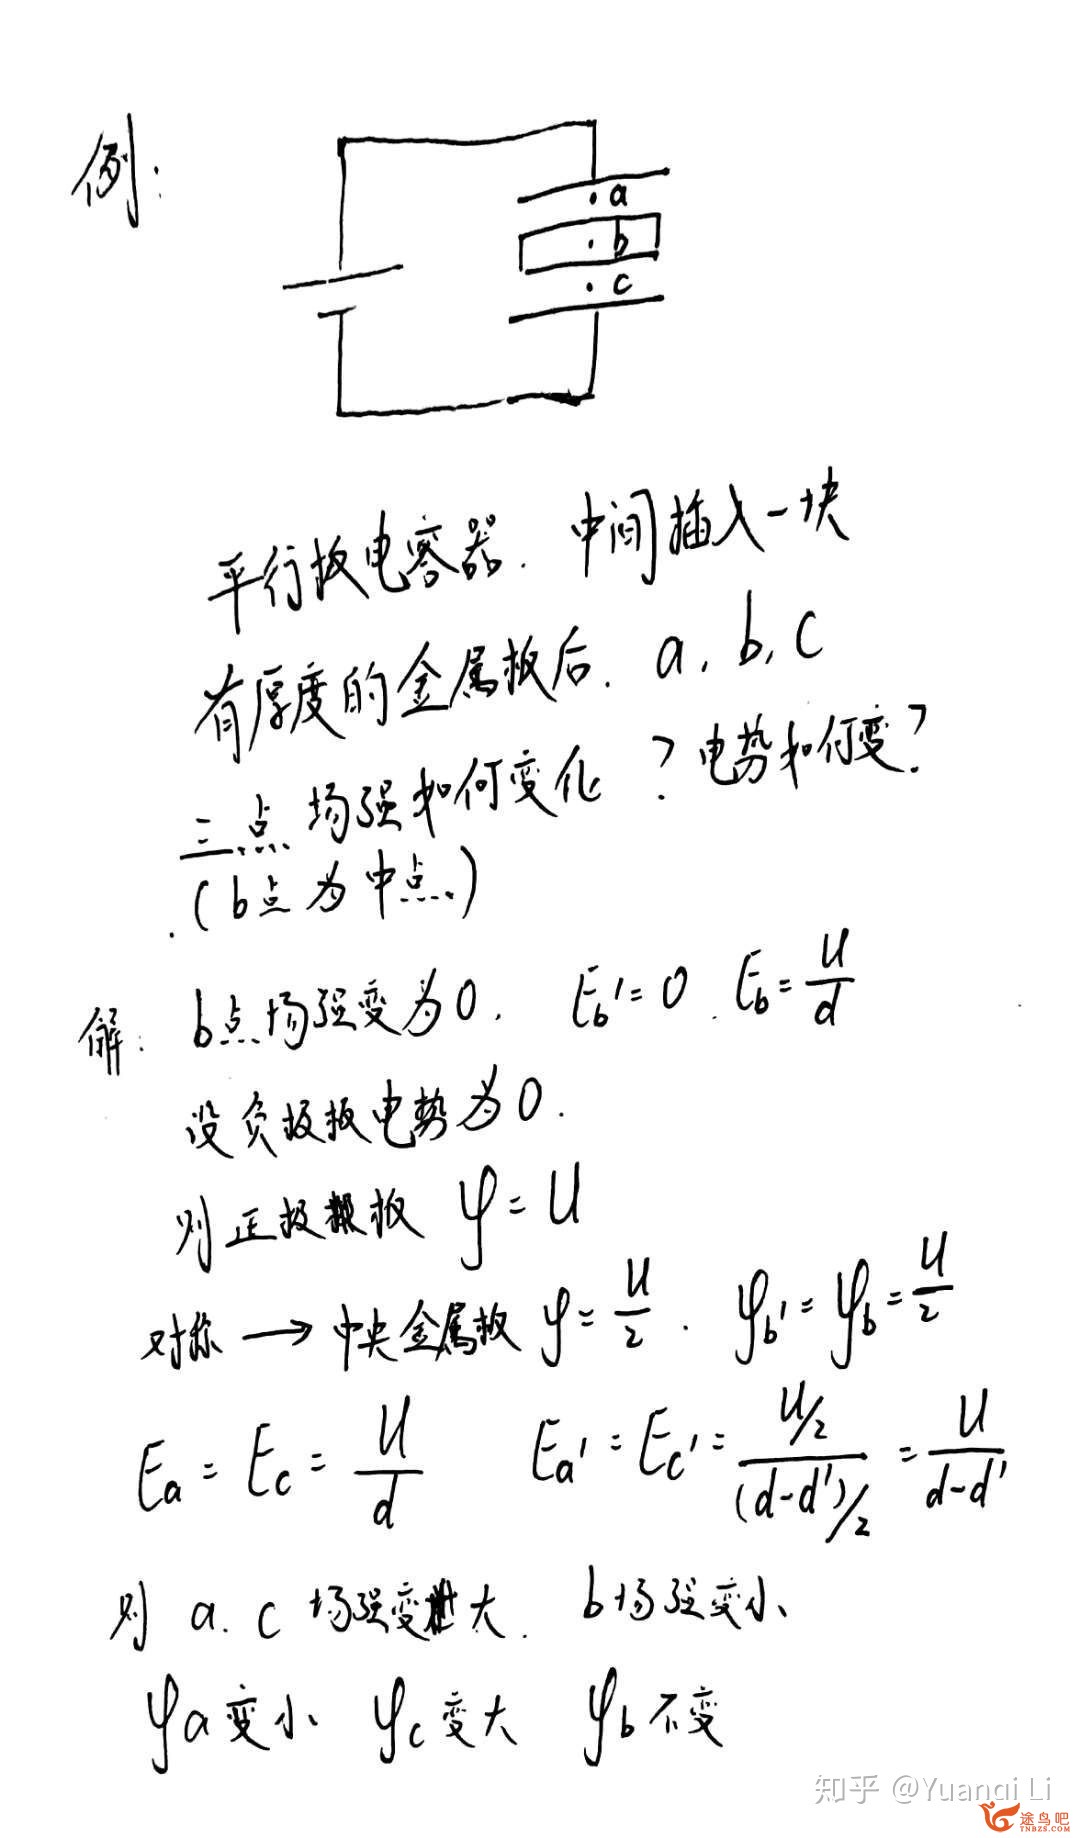 例:
a
b
c
平行板电容器. 中间插入一块
有厚度的金属板后. a, b, c
三点场强如何变化？电势如何变？
(b点为中点)
解: b点场强变为0. E_b'=0. E_b=U/d
设负极板电势为0.
则正极板 φ=U
对称 → 中央金属板 φ=U/2. φ_b'=φ_b=U/2
E_a=E_c=U/d E_a'=E_c'=(U/2)/((d-d')/2)=U/(d-d')
则 a. c 场强变大. b场强变小
φa变小 φc变大 φb不变
知乎 @Yuanqi Li
途鸟吧
TNBZS.COM